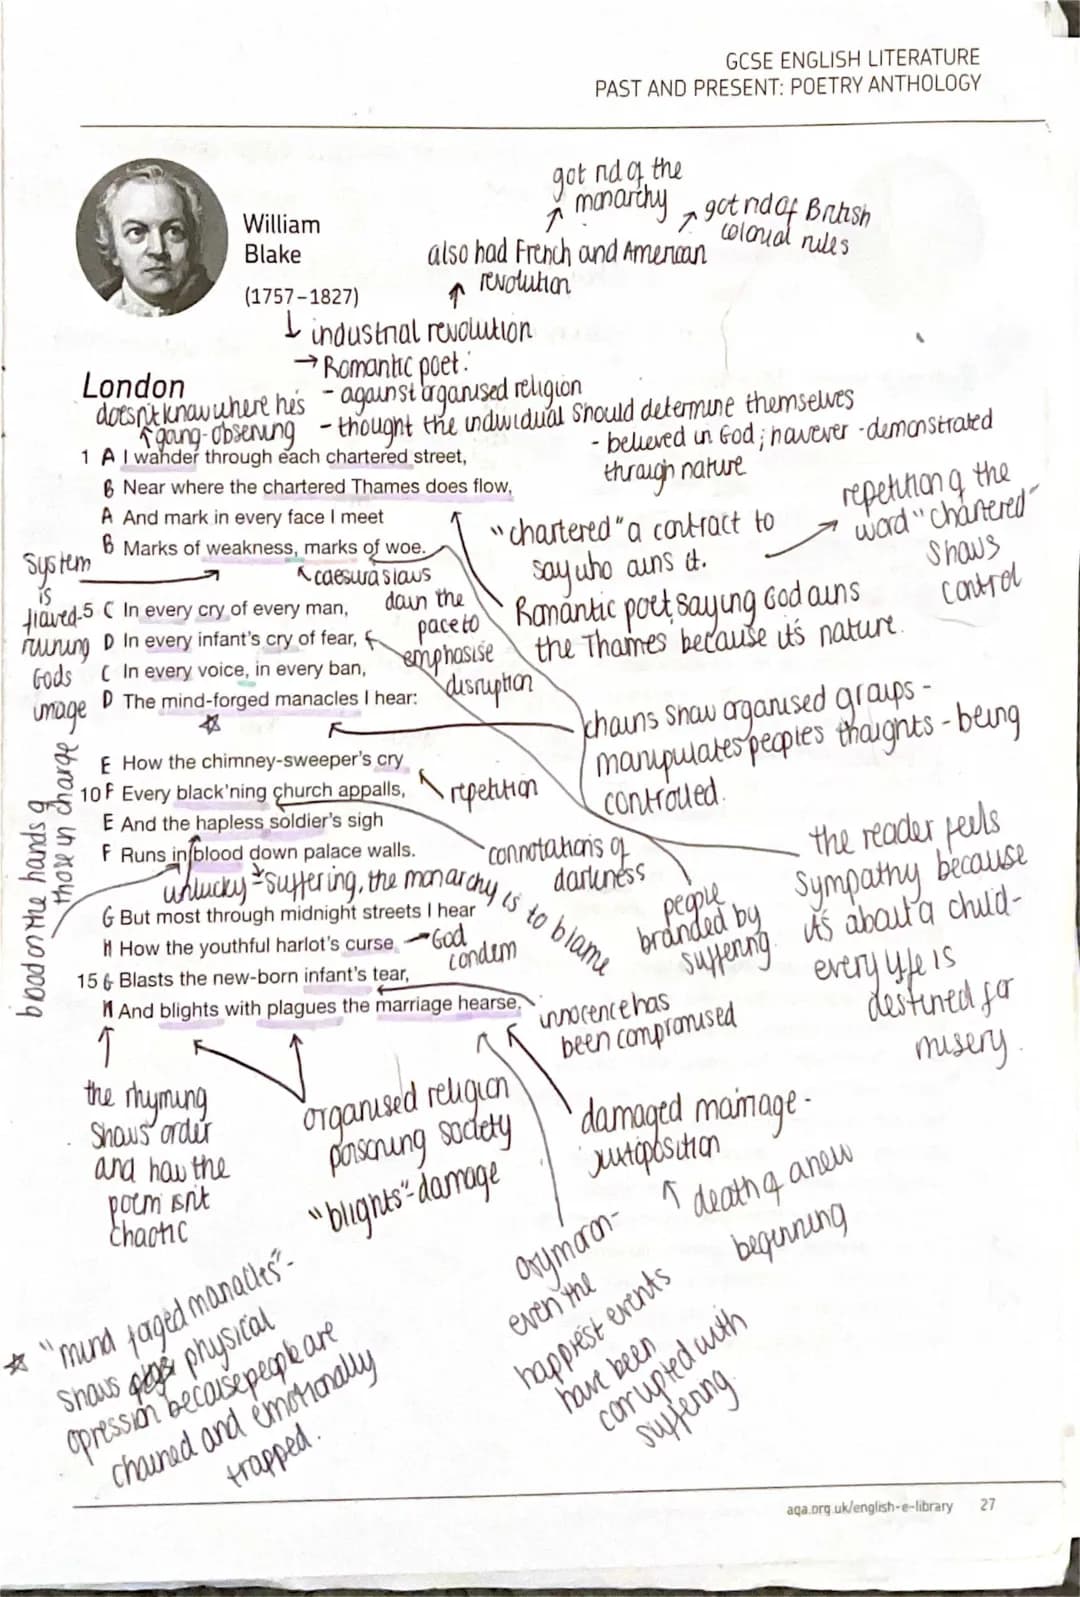 GCSE ENGLISH LITERATURE
PAST AND PRESENT: POETRY ANTHOLOGY
got rid of the
monarchy
got rid of British
colonial rules
William
Blake
(1757–1827)
also had French and American
revolution
industrial revolution
→ Romantic poet:
- against organised religion
- thought the individual should determine themselves
- believed in God; however - demonstrated
through nature
London
doesn't know where he's
gang - observing
1 A I wander through each chartered street,
B Near where the chartered Thames does flow,
A And mark in every face I meet
B Marks of weakness, marks of woe.
"chartered" a contract to
say who owns it.
repetition of the
word "chartered"
shows
control
Romantic poet, saying God owns
the Thames because it's nature.
caesura slows
down the
pace to
emphasise
disruption
System
is
flawed -
ruining
Gods
image
5 C In every cry of every man,
D In every infant's cry of fear,
C In every voice, in every ban,
D The mind-forged manacles I hear:
chains show organised groups -
manipulates peoples thoughts - being
controlled.
E How the chimney-sweeper's cry
10 F Every black'ning church appalls,
E And the hapless soldier's sigh
F Runs in blood down palace walls.
repetition
connotations of
darkness
people
branded by
suffering.
the reader feels
sympathy because
it's about a child -
every life is
destined for
misery.
blood on the hands of
those in charge
unlucky - suffering, the monarchy is to blame
G But most through midnight streets I hear
H How the youthful harlot's curse
15 G Blasts the new-born infant's tear,
H And blights with plagues the marriage hearse.
God
condem
innocence has
been compromised
the rhyming
shows order
and how the
poem isn't
chaotic
organised religion
poisoning society
"blights" - damage
damaged marriage -
juxtaposition
death of a new
beginning
oxymoron -
even the
happiest events
have been
corrupted with
suffering.
"mind forged manacles" -
shows physical
opression because people are
chained and emotionally
trapped.
aqa.org.uk/english-e-library 27